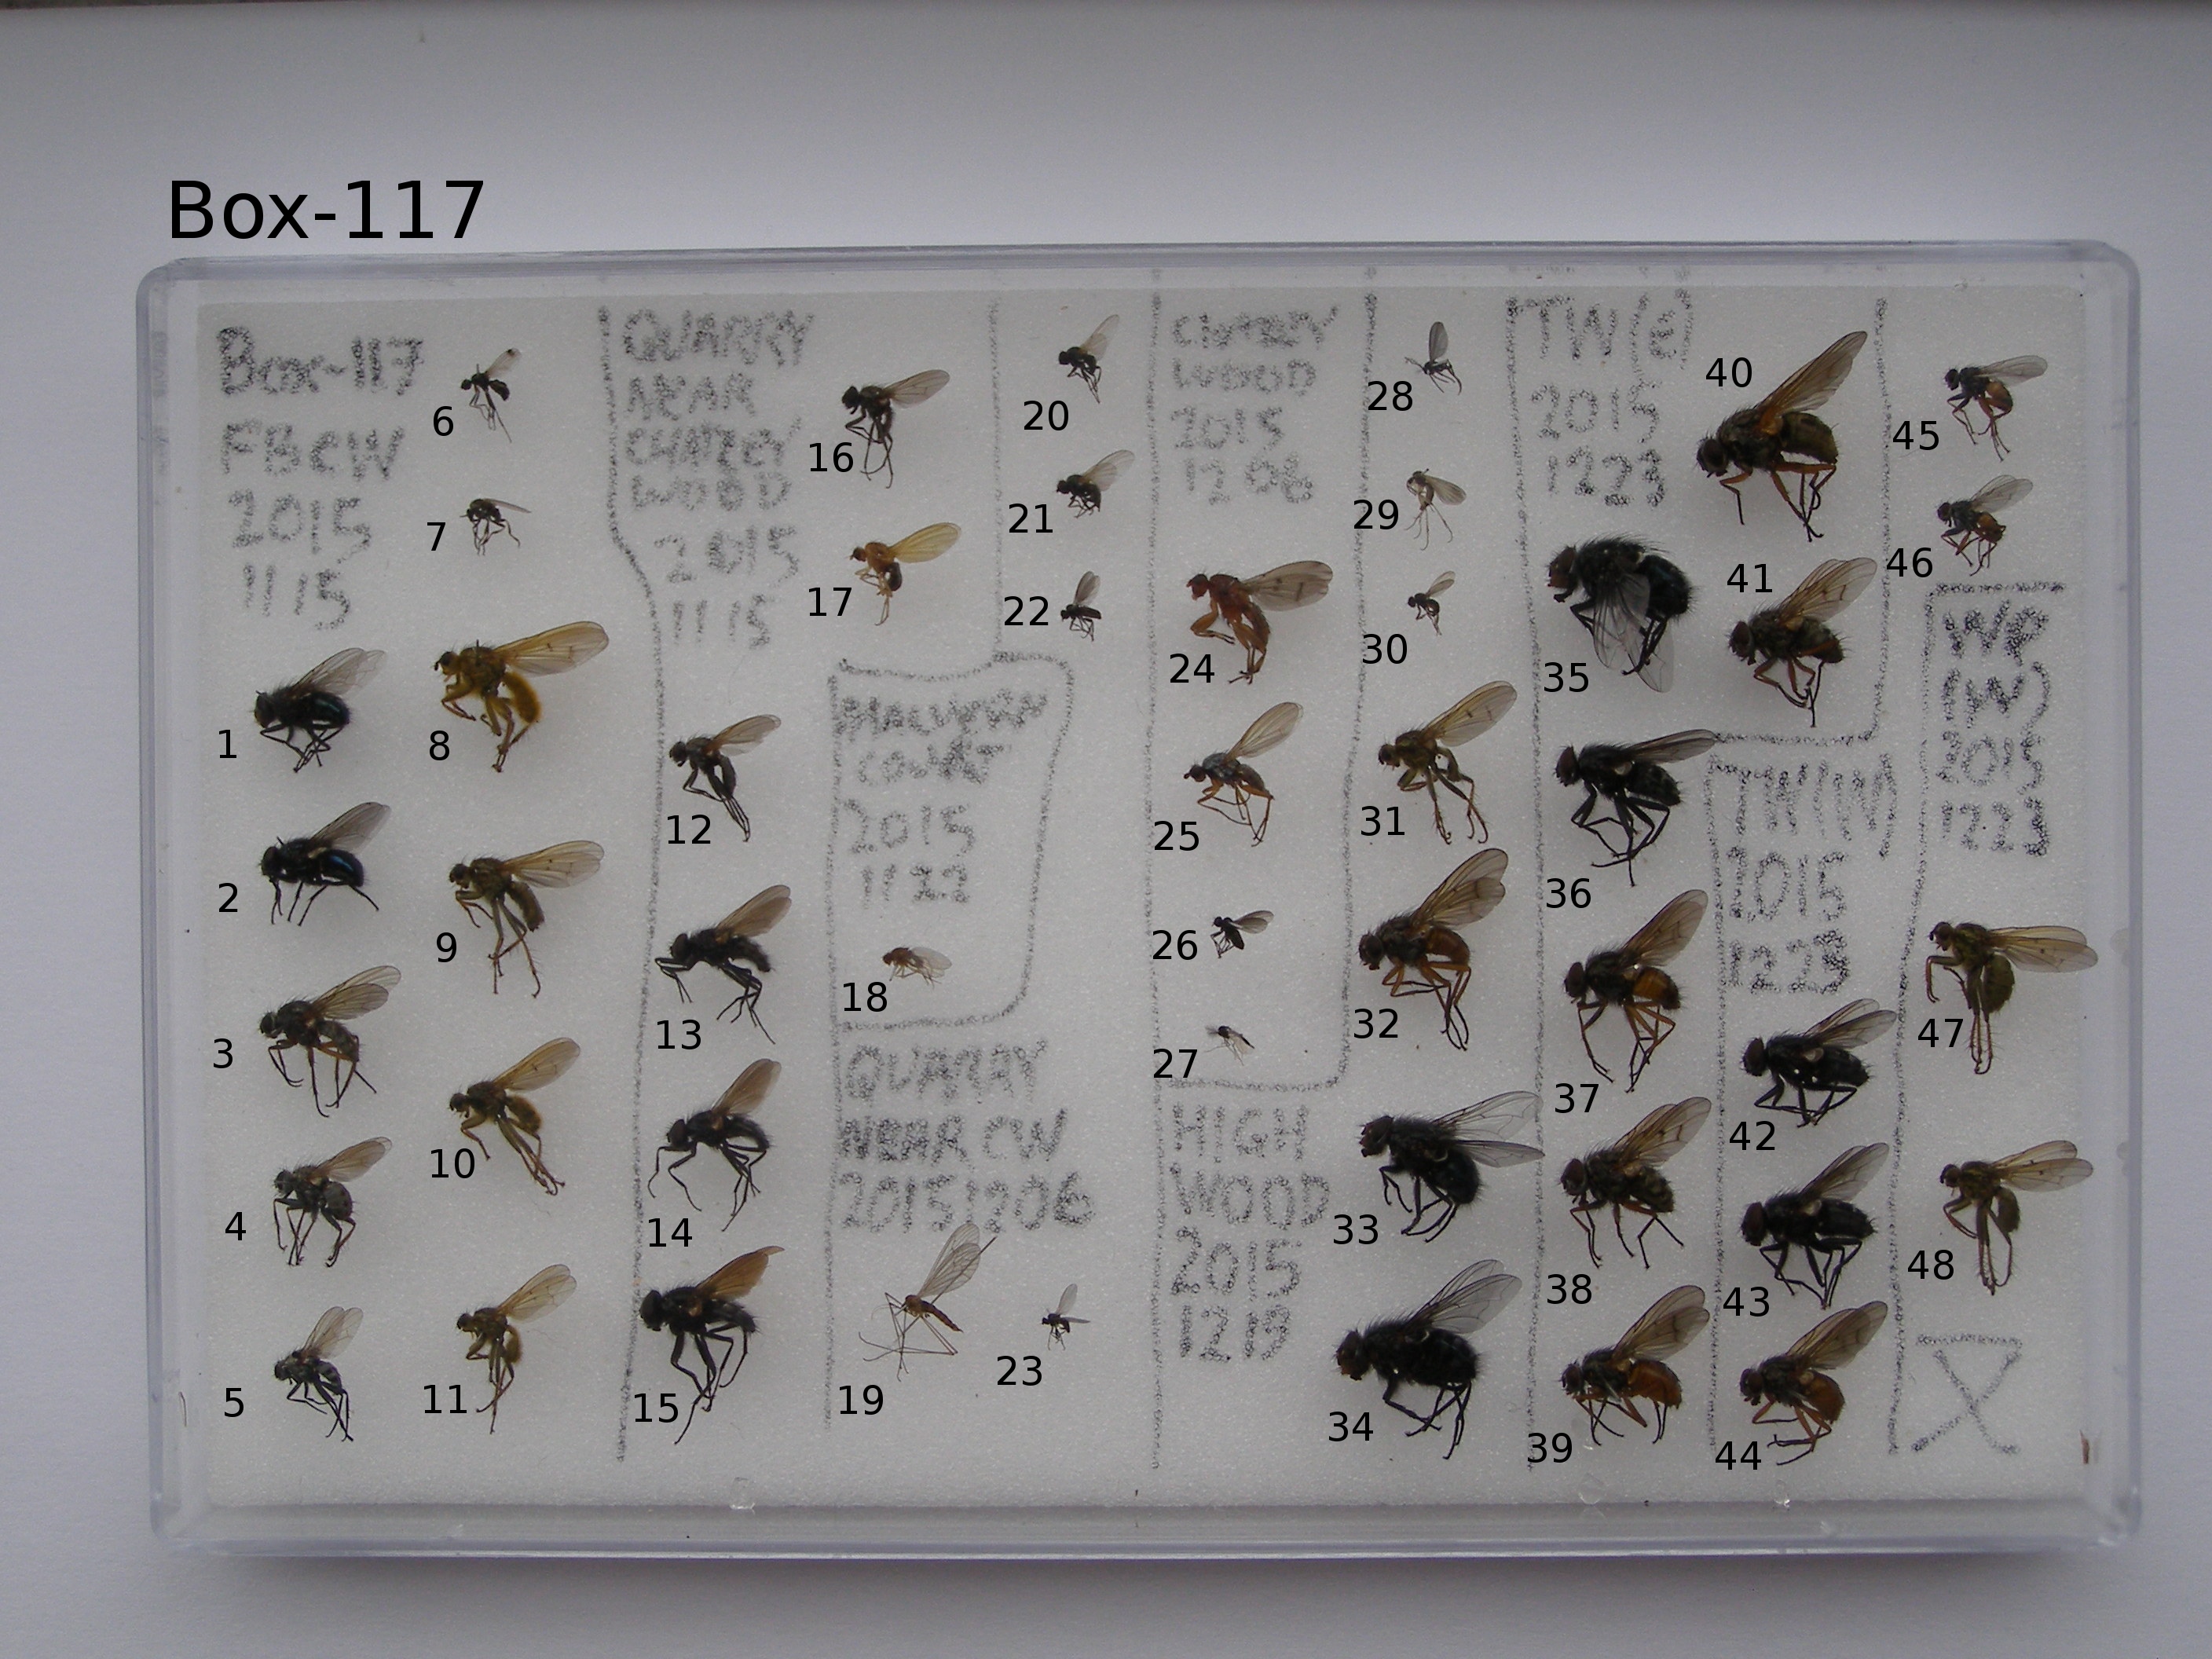 Box-117
Box-117
FBCW
2015
11 15
6
7
1
8
2
9
3
10
4
11
5
QUARRY
NEAR
WOOD
2015
11 15
16
17
12
13
14
15
2015
11 22
18
QUARRY
NEAR CW
20151206
19
20
21
22
23
WOOD
2015
12 06
24
25
26
27
HIGH
WOOD
2015
12 13
28
29
30
31
32
33
34
2015
1223
35
36
37
38
39
40
41
2015
1223
42
43
44
45
46
WP
2015
1223
47
48